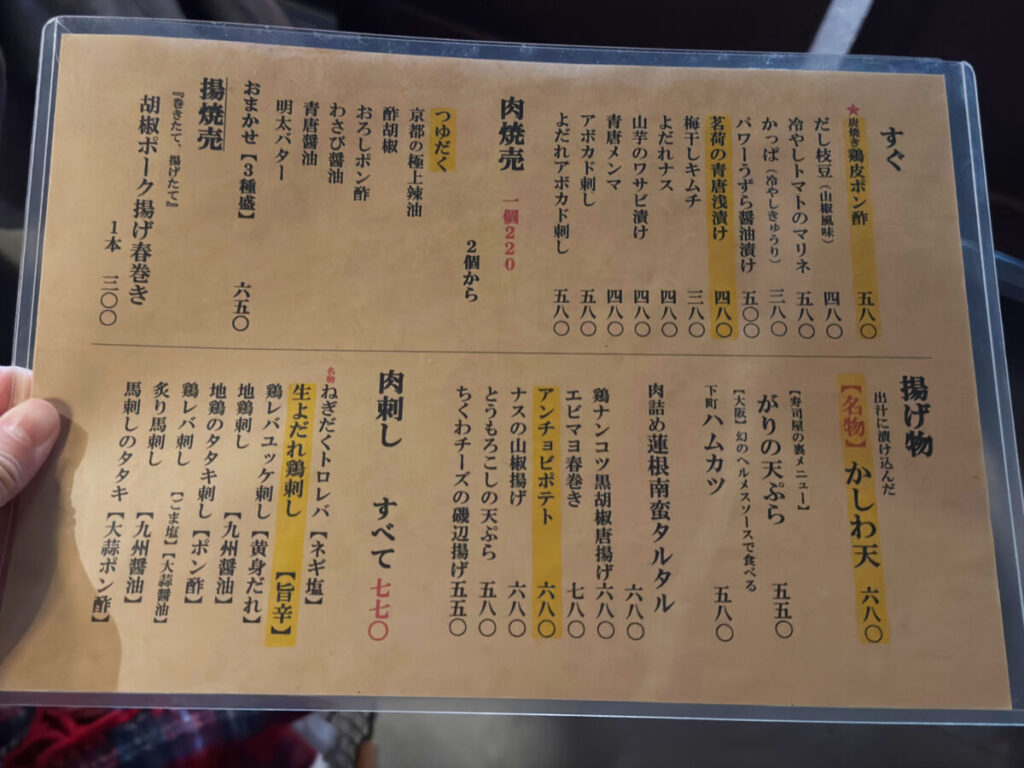 すぐ
★炭焼き鶏皮ポン酢 五八〇
だし枝豆（山椒風味） 四八〇
冷やしトマトのマリネ 五八〇
かっぱ（冷やしきゅうり） 三八〇
パワーうずら醤油漬け 五〇〇
茗荷の青唐浅漬け 四八〇
梅干しキムチ 三八〇
よだれナス 四八〇
山芋のワサビ漬け 四八〇
青唐メンマ 四八〇
アボカド刺し 五八〇
よだれアボカド刺し 五八〇
肉焼売 一個220
2個から
つゆだく
京都の極上辣油
酢胡椒
おろしポン酢
わさび醤油
青唐醤油
明太バター
おまかせ【3種盛】 六五〇
揚焼売
『巻きたて、揚げたて』
胡椒ポーク揚げ春巻き
1本 三〇〇
揚げ物
出汁に漬け込んだ
【名物】かしわ天 六八〇
【寿司屋の裏メニュー】
がりの天ぷら 五五〇
【大阪】幻のヘルメスソースで食べる
下町ハムカツ 五八〇
肉詰め蓮根南蛮タルタル
六八〇
鶏ナンコツ黒胡椒唐揚げ 六八〇
エビマヨ春巻き 七八〇
アンチョビポテト 六八〇
ナスの山椒揚げ 六八〇
とうもろこしの天ぷら 五八〇
ちくわチーズの磯辺揚げ 五五〇
肉刺し すべて 七七〇
名物 ねぎだくトロレバ 【ネギ塩】
生よだれ鶏刺し 【旨辛】
鶏レバユッケ刺し 【黄身だれ】
地鶏刺し 【九州醤油】
地鶏のタタキ刺し 【ポン酢】
鶏レバ刺し 【ごま塩】【大蒜醤油】
炙り馬刺し 【九州醤油】
馬刺しのタタキ 【大蒜ポン酢】